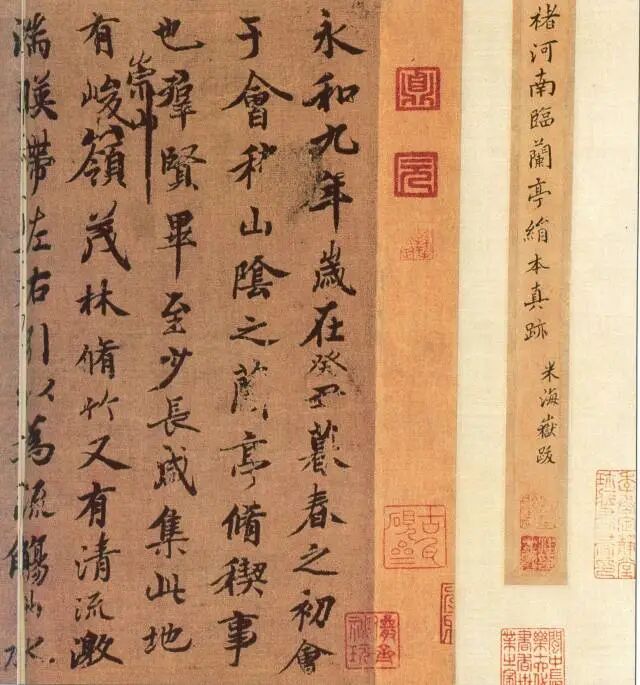 褚河南臨蘭亭絹本真跡 米海嶽跋
永和九年歲在癸丑暮春之初會
于會稽山陰之蘭亭脩稧事
也羣賢畢至少長咸集此地
有崇山峻嶺茂林脩竹又有清流激
湍暎帶左右引以為流觴曲水